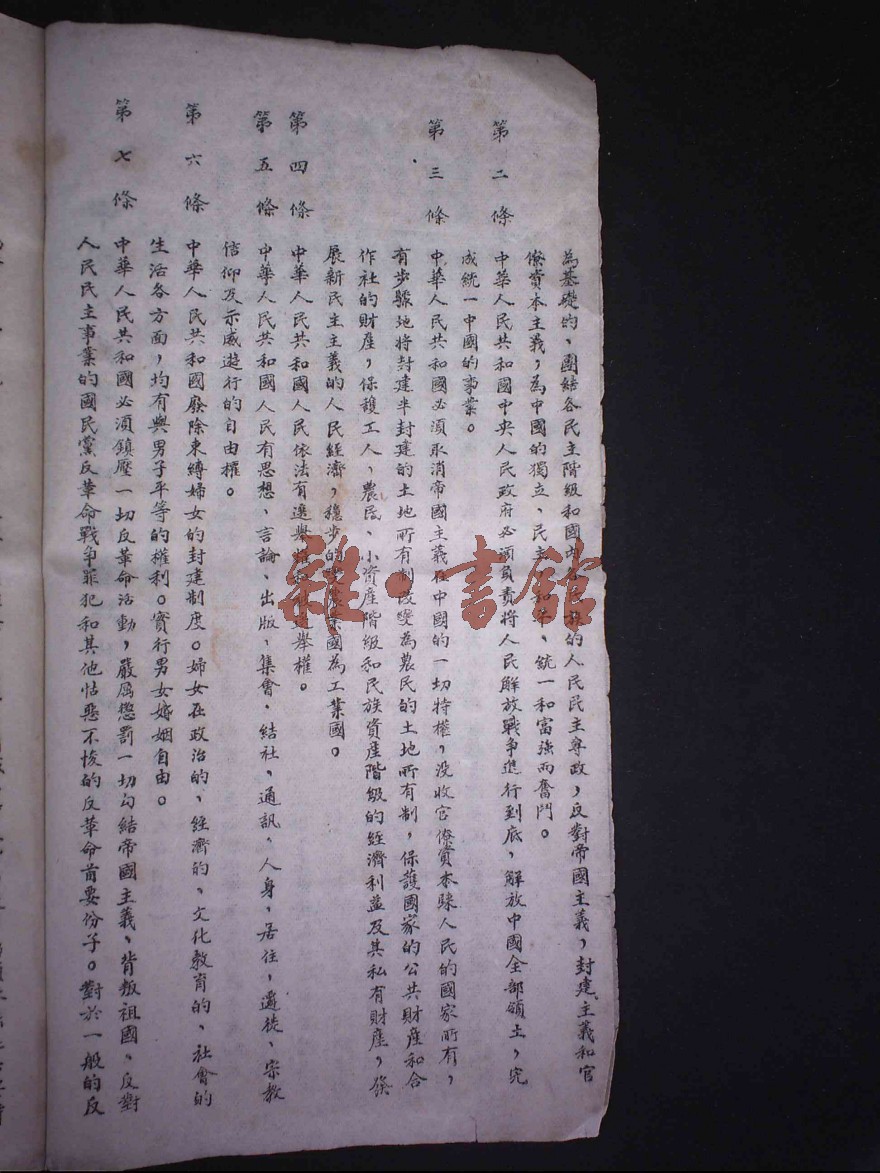 為基礎的、團結各民主階級和國內 族的人民民主專政，反對帝國主義，封建主義和官
僚資本主義，為中國的獨立、民主 、統一和富強而奮鬥。
第二條 中華人民共和國中央人民政府必須負責將人民解放戰爭進行到底，解放中國全部領土，完
成統一中國的事業。
第三條 中華人民共和國必須取消帝國主義在中國的一切特權，没收官僚資本歸人民的國家所有，
有步驟地將封建半封建的土地所有制改變為農民的土地所有制，保護國家的公共財產和合
作社的財產，保護工人，農民、小資産階級和民族資産階級的經濟利益及其私有財産，發
展新民主主義的人民經濟，穩步的變 業國為工業國。
第四條 中華人民共和國人民依法有選舉 選舉權。
第五條 中華人民共和國人民有思想、言論、出版、集會、結社、通訊、人身，居住，遷徙、宗教
信仰及示威遊行的自由權。
第六條 中華人民共和國廢除束縛婦女的封建制度。婦女在政治的、經濟的、文化教育的、社會的
生活各方面，均有與男子平等的權利。實行男女婚姻自由。
第七條 中華人民共和國必須鎮壓一切反革命活動，嚴厲懲罰一切勾結帝國主義、背叛祖國、反對
人民民主事業的國民黨反革命戰爭罪犯和其他怙惡不悛的反革命首要份子。對於一般的反
雜·書館